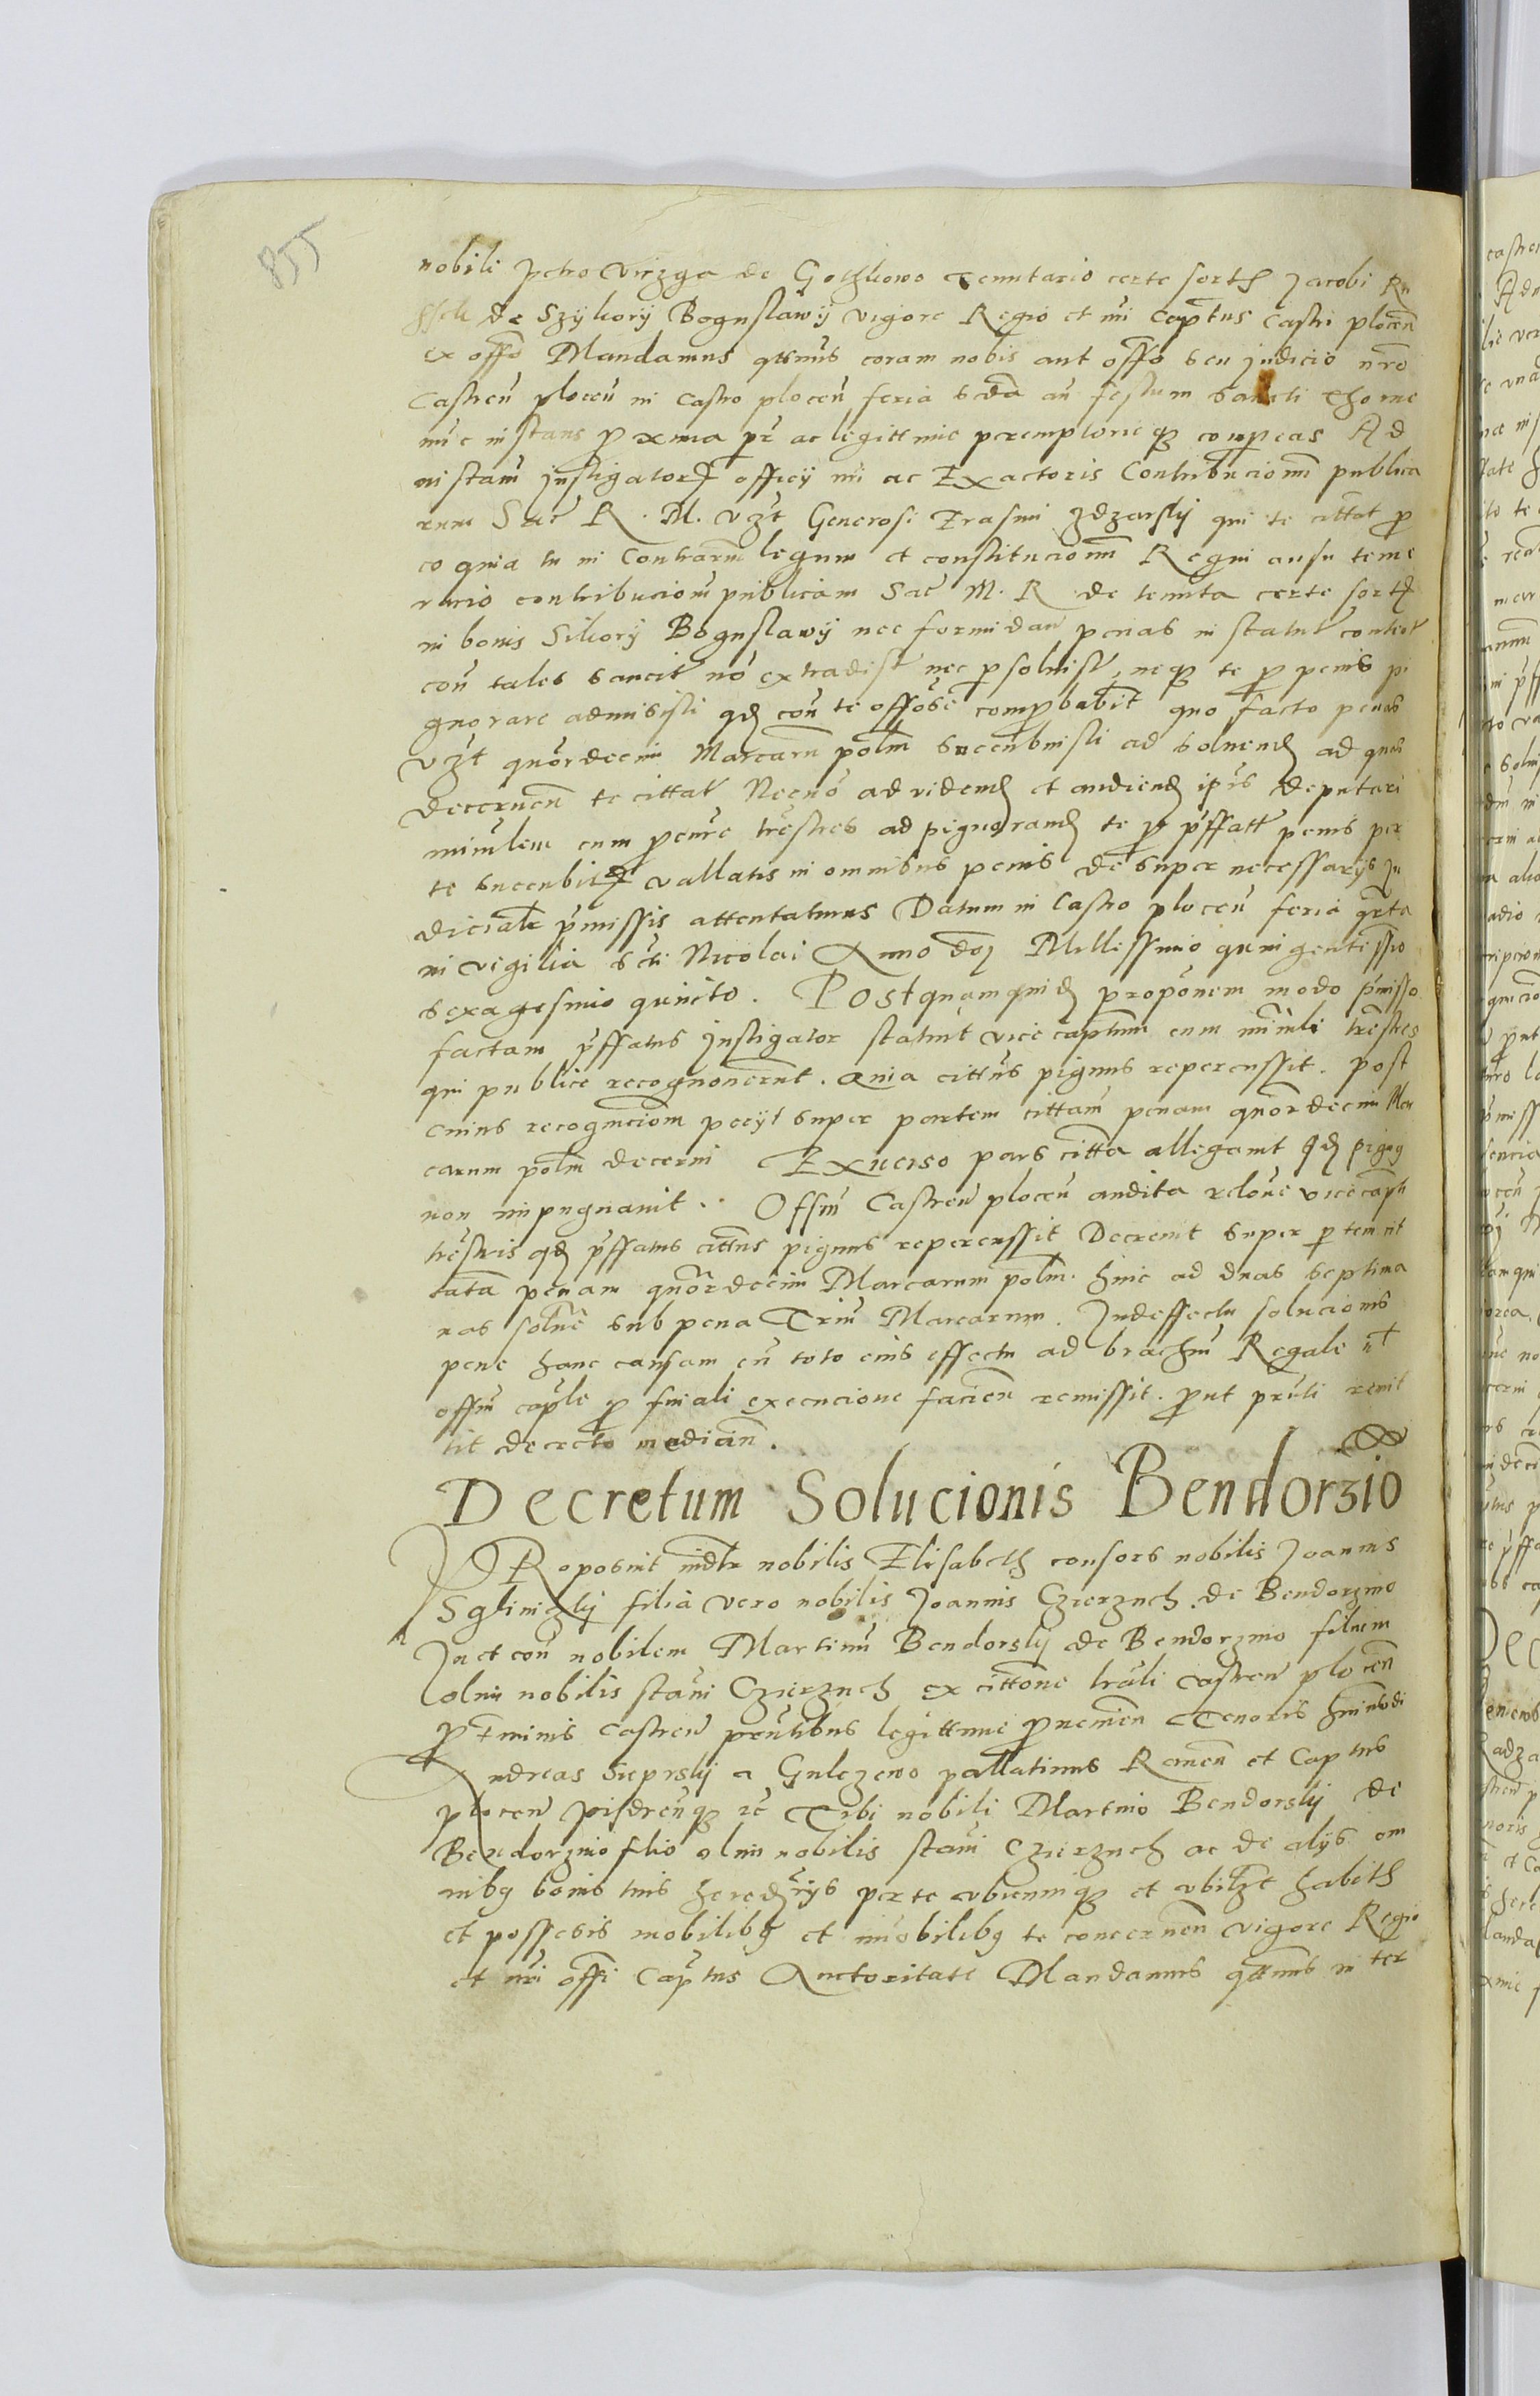 855
nobili petro Wiezga de Gothkowo Tenutario certe sortis Jacobi Ru
de Szykory Boguslawij vigore Regio et nri Captus Castri plocen
ex offo Mandamus qttnus coram nobis aut offo seu Judicio nro
Castren plocen in Castro plocen feria scda an festum sancti Thome
nuc instans proxima pr ac legittime peremptorieque compeas Ad
instam Instigatoris officij nri ac Exactoris Contribucionum publica
rum Sac R. M. vzt Generosi Erasmi Zdzarsky qui te cittat pro
eo quia tu in Contrarium legum et constitucionum Regni ausu teme
rario contribucionem publicam Sac M. R de tenuta certe sortis
in bonis Sikory Boguslawij nec formidan penas in statut content
con tales sancit no extradist nec persoluist, neque te pro penis pi
gnorare admisisti qd con te offose comprobabit quo facto penas
vzt quordecim Marcarum polm succubuisti ad soluend ad quas
decernen te cittat Necno ad vidend et audiend ipis deputari
mimlem cum trestres ad pignorand te pro pffatt penis per
te succubitis vallatis in omnibus penis desuper necessarijs Ju
dicialr pmissis attentaturus Datum in Castro plocen feria qrta
in vigilia scti Nicolai Anno doj Millessimo quingentessio
sexagesimo quincto. Postquamquid proponem modo pmisso
factam pffatus Instigator statuit vicecaptum cum mimli trestres
qui publice recognouerut. Quia cittus pignus repercussit. post
cuius recognicionem pecijt super partem cittam penam quordecim Mar
carum polm decerni Exuerso pars citta allegauit qd pign
non impugnauit.. Offm Castren plocen audita relone vicecapti
trestris qd pffatus cittus pignus repercussit Decreuit super ptem cit
tata penam quordecim Marcarum polm. hinc ad duas septima
nas soluere sub pena Trium Marcarum. Indeffectu solucionis
pene hanc causam cu toto eius effectu ad brachiu Regale ut
offm caple pro finali execucione facien remissit. prout pnti remit
tit decreto median.
Decretum Solucionis Bendorzio
PRoposuit iudlr nobilis Elisabeth consors nobilis Joannis
Sglinizky filia vero nobilis Joannis Czierzuch de Bendorzmo
In et con nobilem Martinu Bendorsky de Bendorzmo filium
olim nobilis stani Czierzuch ex cittone trali Castren plocen
pro Tminis Castren pntibus legittime prouenien Tenoris hmuodi
Andreas Sieprsky a Gulczewo pallatinus Rauen et Captus
plocen Pisdrenque rc Tibi nobili Martino Bendorsky de
Bendorzmo filio olim nobilis stani Czierzuch ac de alijs om
nibq bonis tuis heredrijs per te vbicumque et vbilzt habith
et possesis mobilibq et immobilibq te concernen vigore Regio
et nri offi Captus Auctoritate Mandamus qttnus in ter